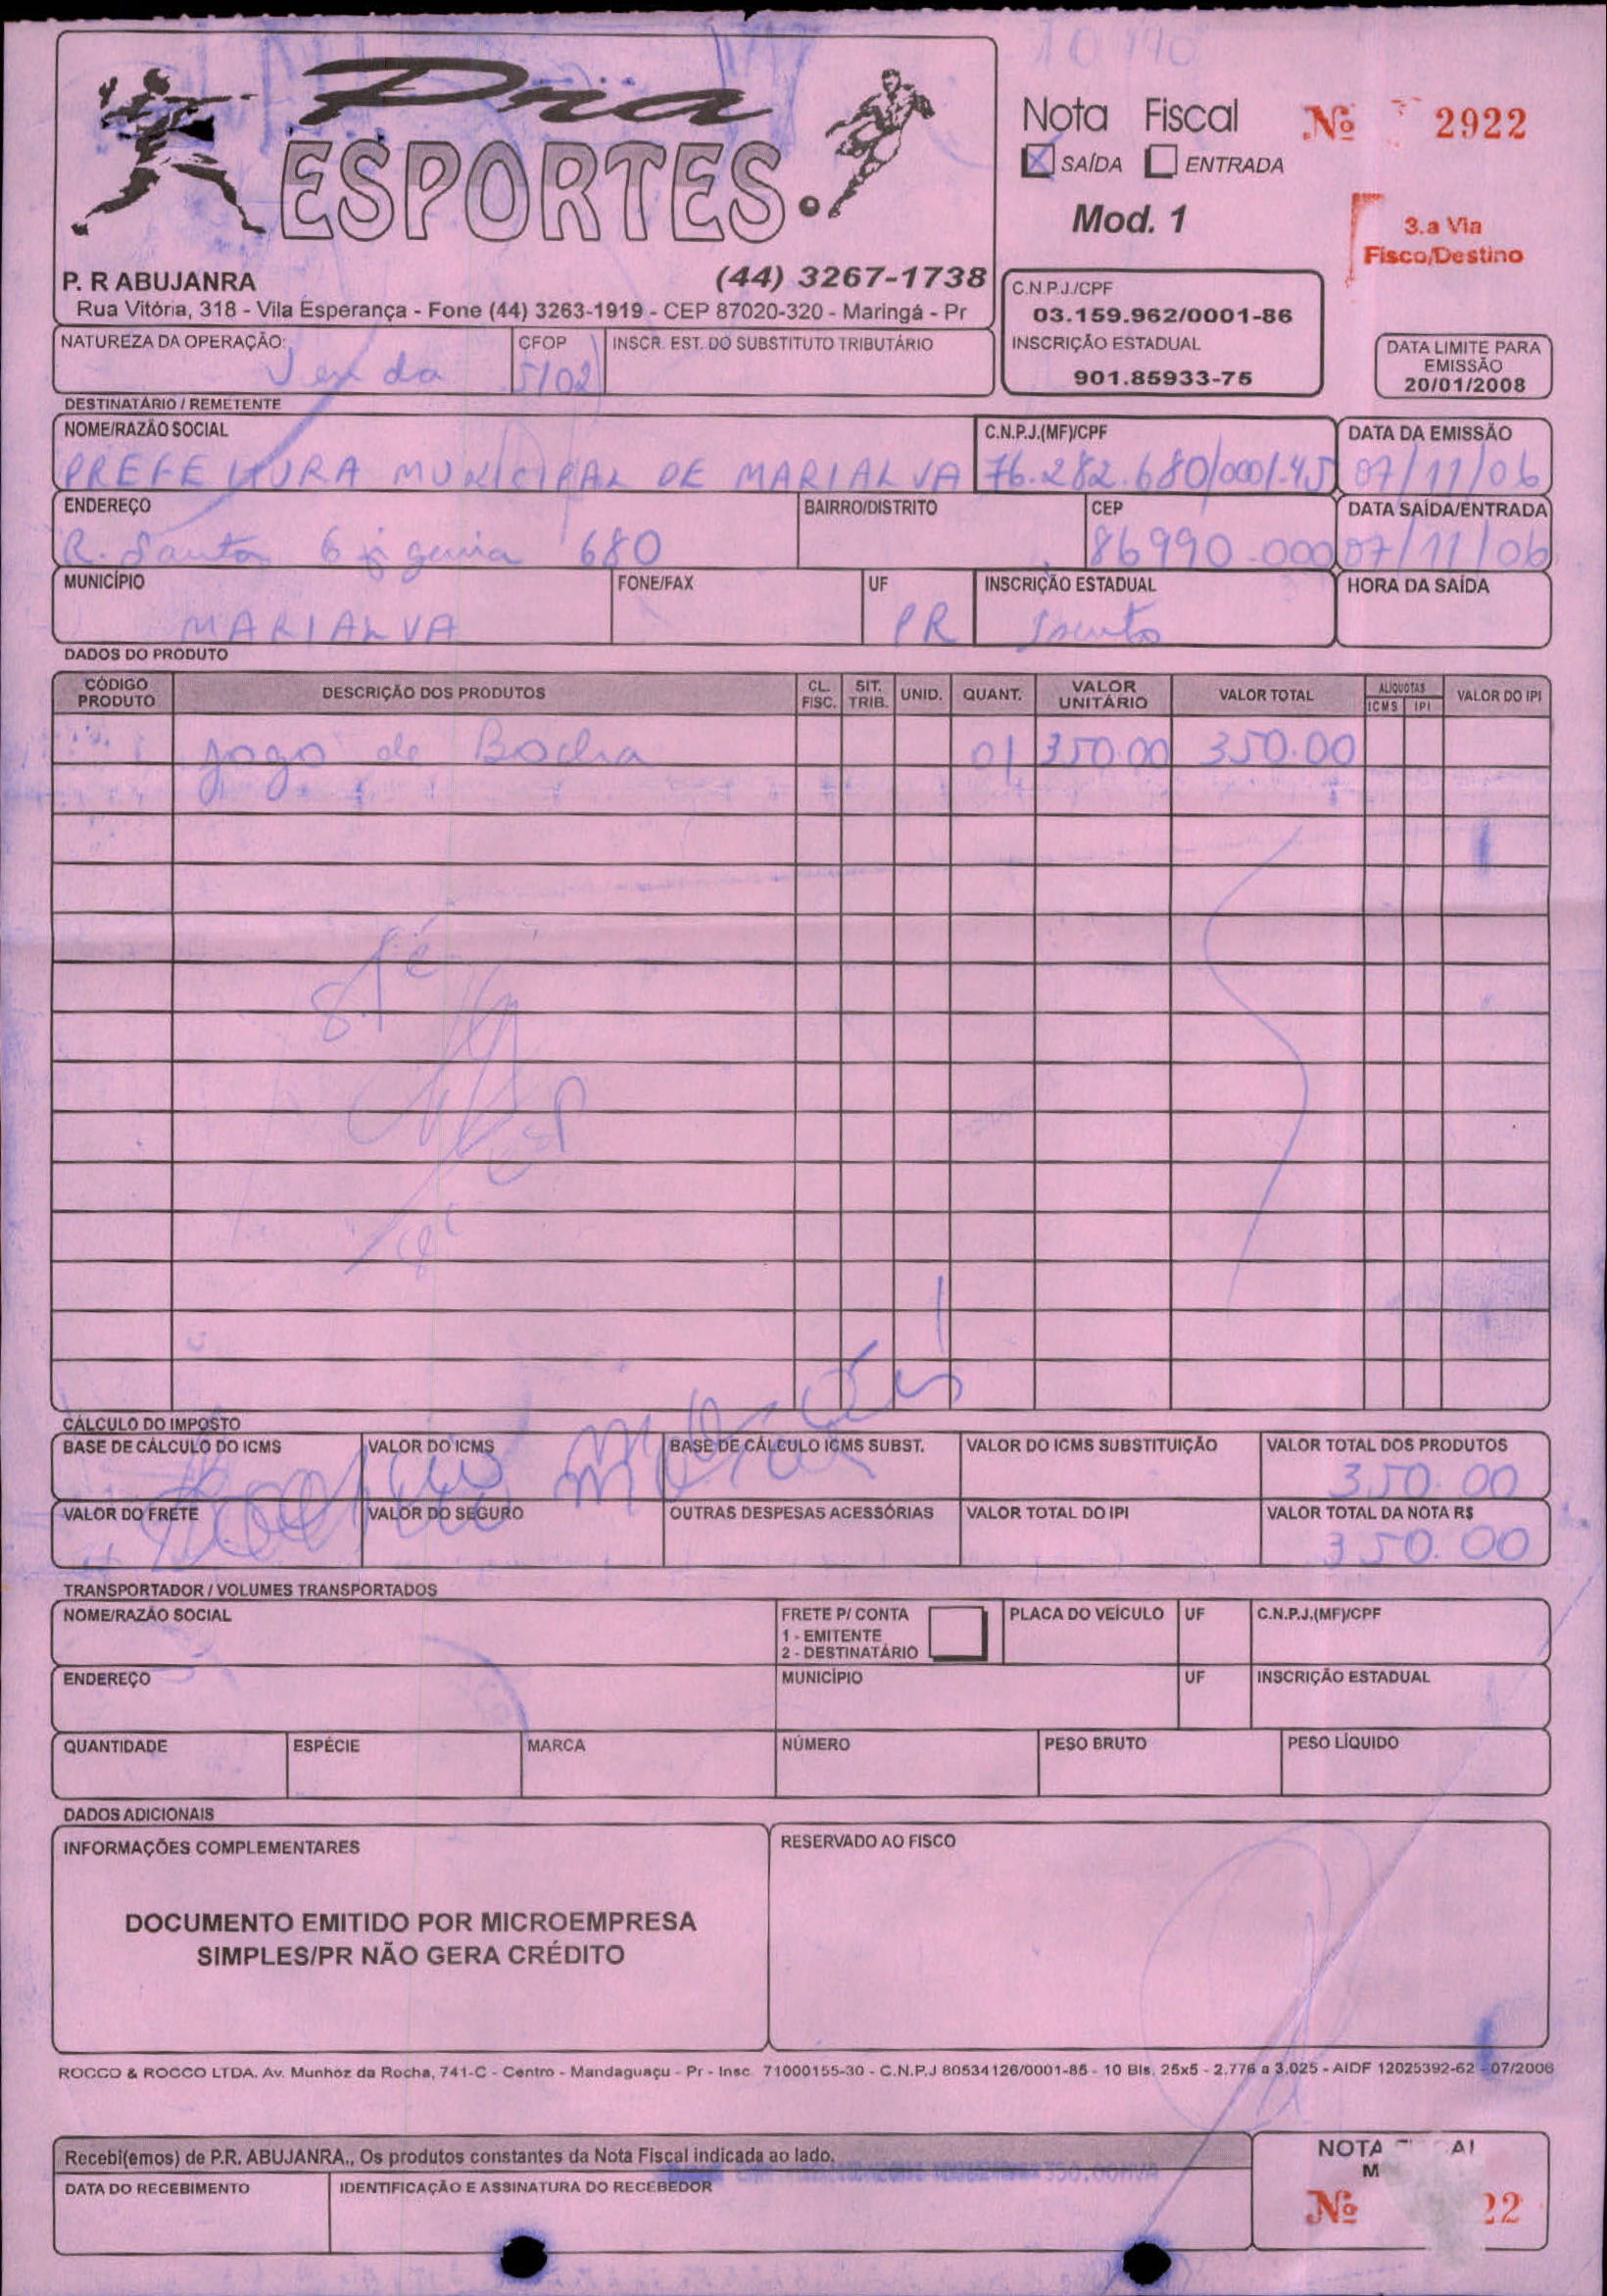 Pria
ESPORTES
P. R ABUJANRA (44) 3267-1738
Rua Vitória, 318 - Vila Esperança - Fone (44) 3263-1919 - CEP 87020-320 - Maringá - Pr
Nota Fiscal Nº 2922
X SAÍDA ENTRADA
Mod. 1
3.a Via
Fisco/Destino
C.N.P.J./CPF
03.159.962/0001-86
INSCRIÇÃO ESTADUAL
901.85933-75
DATA LIMITE PARA
EMISSÃO
20/01/2008
NATUREZA DA OPERAÇÃO: CFOP INSCR. EST. DO SUBSTITUTO TRIBUTÁRIO
Venda 5102
DESTINATÁRIO / REMETENTE
NOME/RAZÃO SOCIAL C.N.P.J.(MF)/CPF DATA DA EMISSÃO
PREFEITURA MUNICIPAL DE MARIALVA 76.282.680/0001-45 07/11/06
ENDEREÇO BAIRRO/DISTRITO CEP DATA SAÍDA/ENTRADA
R. Santa 680 86990-000 07/11/06
MUNICÍPIO FONE/FAX UF INSCRIÇÃO ESTADUAL HORA DA SAÍDA
MARIALVA PR Isento
DADOS DO PRODUTO
CÓDIGO PRODUTO DESCRIÇÃO DOS PRODUTOS CL. FISC. SIT. TRIB. UNID. QUANT. VALOR UNITÁRIO VALOR TOTAL ALÍQUOTAS ICMS IPI VALOR DO IPI
Jogo de Bocha 01 350.00 350.00
CÁLCULO DO IMPOSTO
BASE DE CÁLCULO DO ICMS VALOR DO ICMS BASE DE CÁLCULO ICMS SUBST. VALOR DO ICMS SUBSTITUIÇÃO VALOR TOTAL DOS PRODUTOS
350.00
VALOR DO FRETE VALOR DO SEGURO OUTRAS DESPESAS ACESSÓRIAS VALOR TOTAL DO IPI VALOR TOTAL DA NOTA R$
350.00
TRANSPORTADOR / VOLUMES TRANSPORTADOS
NOME/RAZÃO SOCIAL FRETE P/ CONTA PLACA DO VEÍCULO UF C.N.P.J.(MF)/CPF
1 - EMITENTE
2 - DESTINATÁRIO
ENDEREÇO MUNICÍPIO UF INSCRIÇÃO ESTADUAL
QUANTIDADE ESPÉCIE MARCA NÚMERO PESO BRUTO PESO LÍQUIDO
DADOS ADICIONAIS
INFORMAÇÕES COMPLEMENTARES RESERVADO AO FISCO
DOCUMENTO EMITIDO POR MICROEMPRESA
SIMPLES/PR NÃO GERA CRÉDITO
ROCCO & ROCCO LTDA. Av. Munhoz da Rocha, 741-C - Centro - Mandaguaçu - Pr - Insc. 71000155-30 - C.N.P.J 80534126/0001-85 - 10 Bls. 25x5 - 2.776 a 3.025 - AIDF 12025392-62 - 07/2006
Recebi(emos) de P.R. ABUJANRA., Os produtos constantes da Nota Fiscal indicada ao lado.
DATA DO RECEBIMENTO IDENTIFICAÇÃO E ASSINATURA DO RECEBEDOR
NOTA
Nº 22